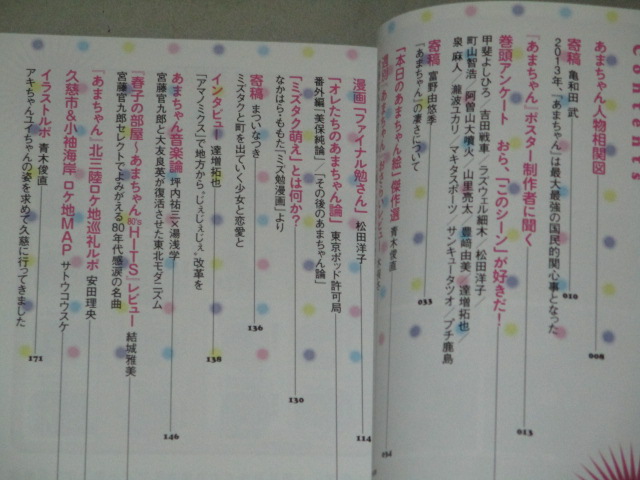 Contents
あまちゃん人物相関図
008
寄稿 亀和田 武
2013年、「あまちゃん」は最大最強の国民的関心事となった
010
「あまちゃん」ポスター制作者に聞く
013
巻頭アンケート おら、「このシーン」が好きだ!
甲斐よしひろ/吉田戦車/ラズウェル細木/松田洋子/
町山智浩/阿曽山大噴火/山里亮太/豊﨑由美/達増拓也/
泉 麻人/瀧波ユカリ/マキタスポーツ/サンキュータツオ/プチ鹿島
寄稿 富野由悠季
「あまちゃん」の凄さについて
033
「本日のあまちゃん絵」傑作選 青木俊直
034
漫画「ファイナル勉さん」 松田洋子
114
「オレたちのあまちゃん論」 東京ポッド許可局
番外編「美保純論」「その後のあまちゃん論」
「ミズタク萌え」とは何か?
なかはら・ももた「ミズ勉漫画」より
130
寄稿 まついなつき
ミズタクと町を出ていく少女と恋愛と
136
インタビュー 達増拓也
「アマノミクス」で地方から“じぇじぇじぇ”改革を
138
あまちゃん音楽論 坪内祐三×湯浅学
宮藤官九郎と大友良英が復活させた東北モダニズム
146
「春子の部屋〜あまちゃん80's HITS」レビュー 結城雅美
宮藤官九郎セレクトでよみがえる80年代感涙の名曲
「あまちゃん」北三陸ロケ地巡礼ルポ 安田理央
久慈市&小袖海岸 ロケ地MAP サトウコウスケ
イラストルポ 青木俊直
アキちゃんユイちゃんの姿を求めて久慈に行ってきました
171